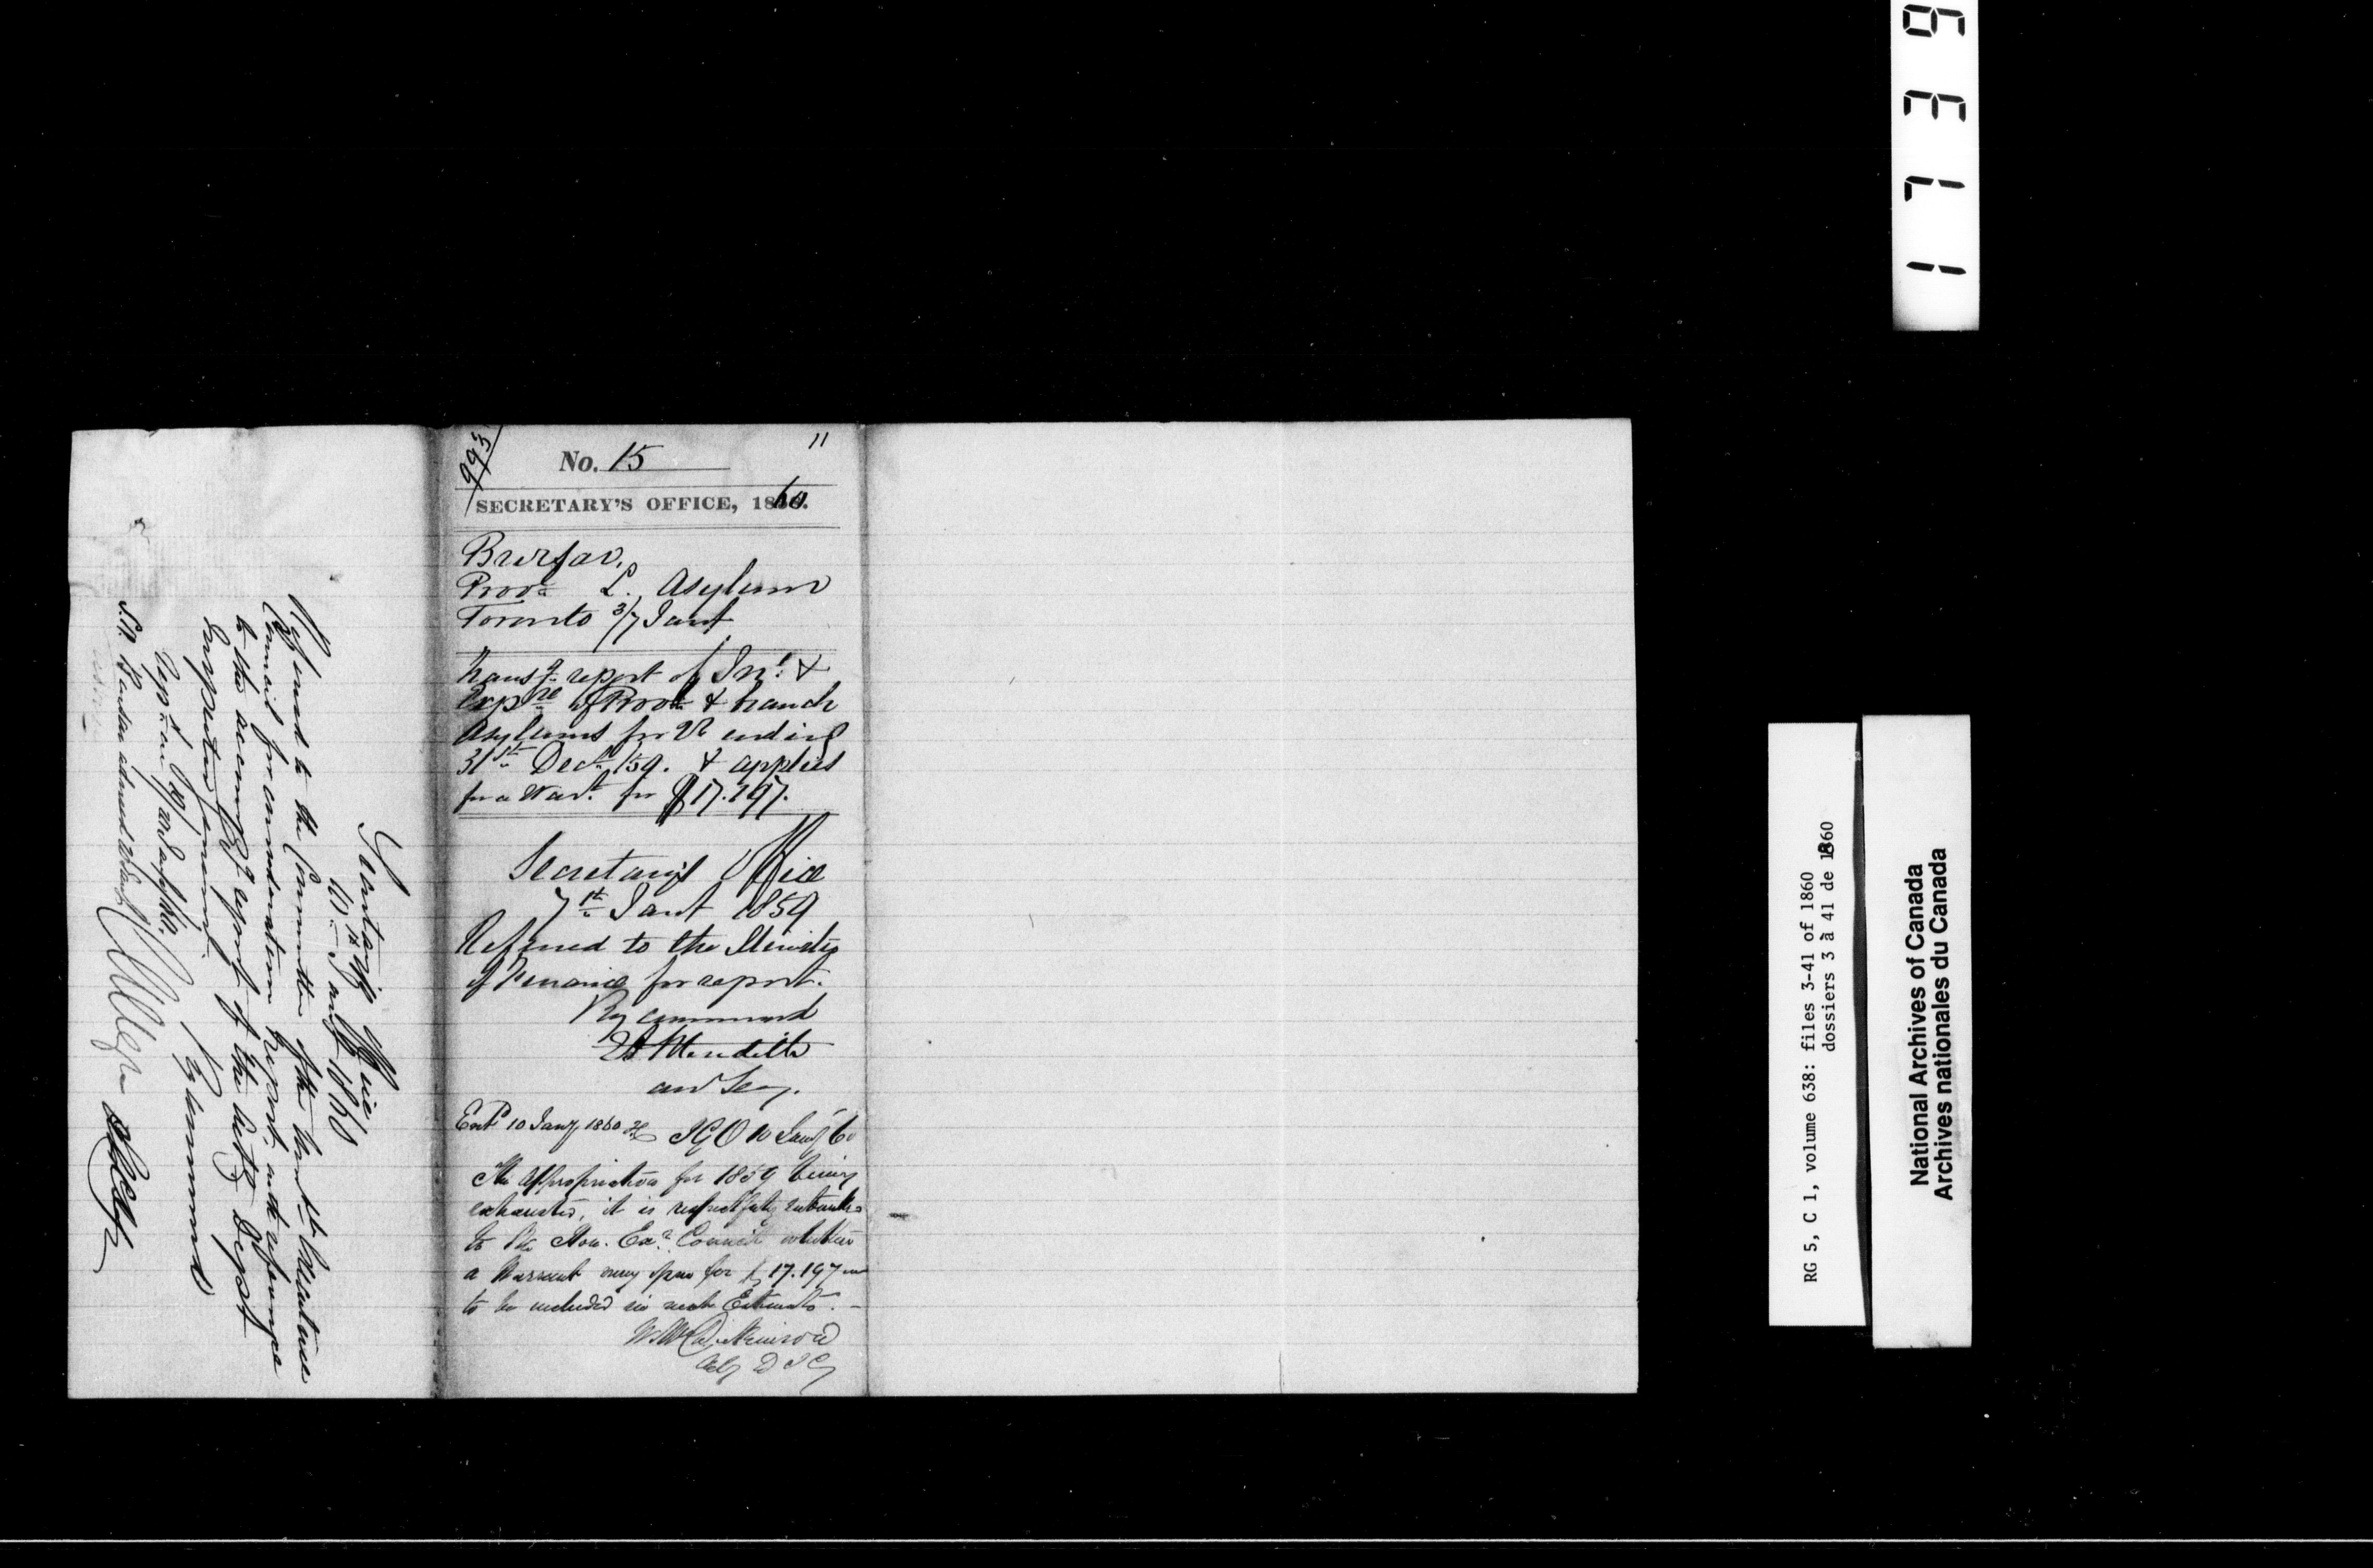 993
No. 15
11
SECRETARY'S OFFICE, 1860.
Bursar,
Provl. L. Asylum
Toronto 3/7 Jany
transg. report of In. &
Expre of Provl. & branch
Asylums for Qr ending
31st Dec. /59. & applies
for a Wart. for $17.197.
Secretary's Office
7th Jany 1859
Referred to the Minister
of Finance for report.
By command
E A Meredith
Ass Secy.
Entd 10 Jany 1860 IGO 10 Jany 60
The appropriation for 1859 being
exhausted, it is respectfully submitted
to the Hon. Exe. Council whether
a Warrant may issue for $17.197
to be included in next Estimate.
Wm Dickinson
Actg D I G
Secretary's Office
10th Jany 1860
Referred to the Committee of the Executive
Council for consideration & report, with reference
to the accompg. report of the
Inspector General.
By command
RG 5, C 1, volume 638: files 3-41 of 1860
dossiers 3 à 41 de 1860
National Archives of Canada
Archives nationales du Canada
1739